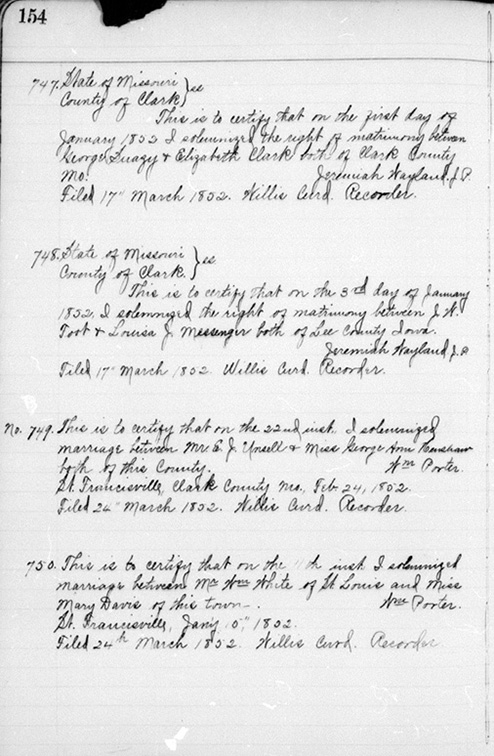 154
747. State of Missouri } ss
County of Clark
This is to certify that on the first day of
January 1852 I solemnized the right of matrimony between
George & Elizabeth Clark both of Clark County
Mo. Jeremiah Wayland. J.P.
Filed 17" March 1852. Willis Curd. Recorder.
748. State of Missouri } ss
County of Clark.
This is to certify that on the 3rd day of January
1852. I solemnized the right of matrimony between J. W.
Foot & Louisa J. Messenger both of Lee County Iowa.
Jeremiah Wayland J.P.
Filed 17" March 1852. Willis Curd. Recorder.
No. 749. This is to certify that on the 22nd inst. I solemnized
marriage between Mr E. J. Unsell & Miss George Ann Henshaw
both of this County. Wm Porter.
St. Francisville, Clark County Mo, Feb 24, 1852.
Filed 24" March 1852. Willis Curd. Recorder.
750. This is to certify that on the inst I solemnized
marriage between Mr Wm White of St Louis and Miss
Mary Davis of this town-. Wm Porter.
St. Francisville, Jany 15", 1852.
Filed 24th March 1852. Willis Curd. Recorder